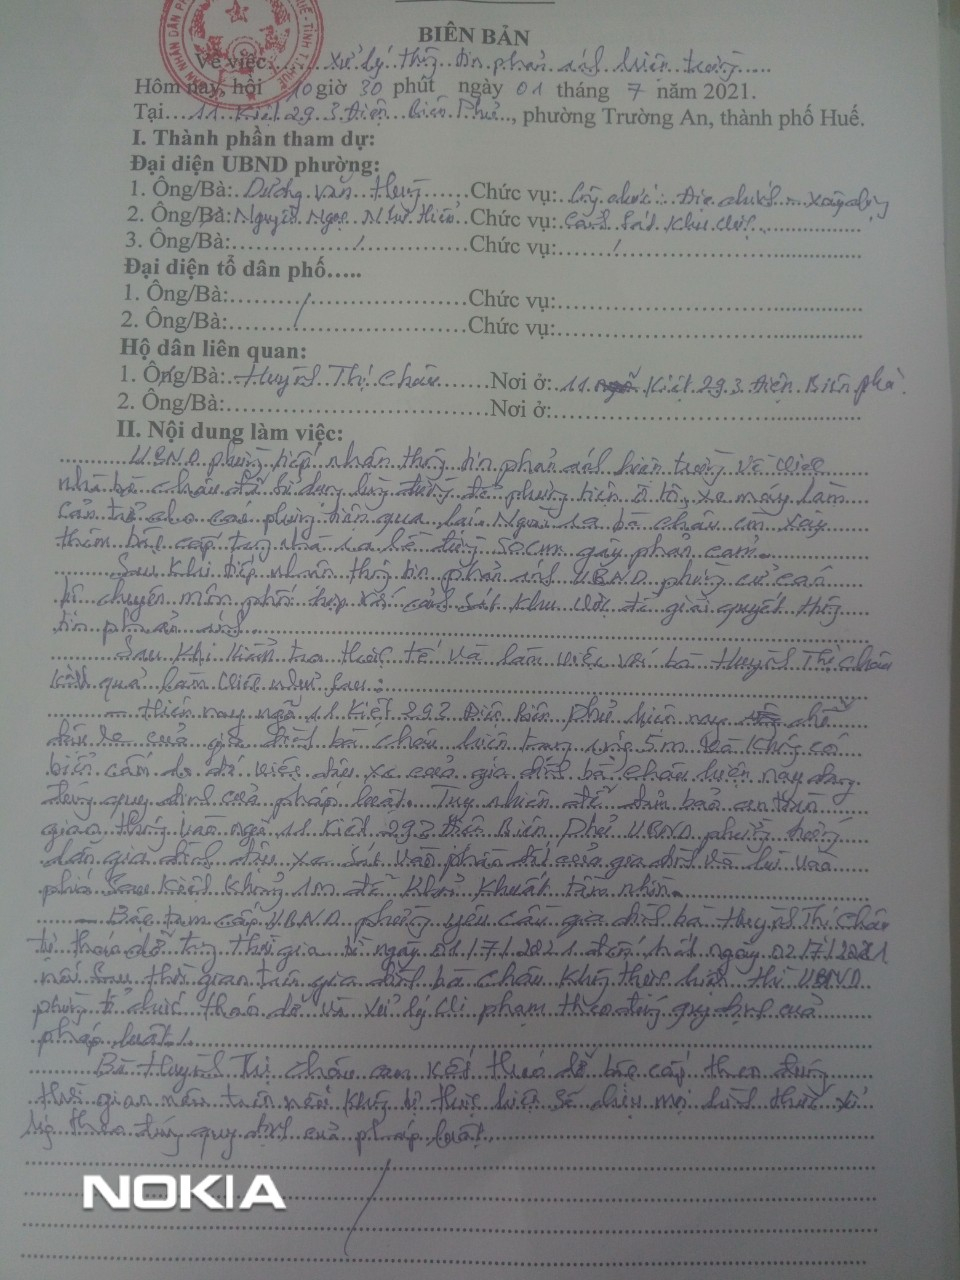 NHÂN DÂN PH HUẾ - TỈNH T.T. HUẾ
BIÊN BẢN
Về việc: Xử lý thông tin phản ánh hiện trường
Hôm nay, hồi 10 giờ 30 phút ngày 01 tháng 7 năm 2021.
Tại 11 Kiệt 293 Điện Biên Phủ, phường Trường An, thành phố Huế.
I. Thành phần tham dự:
Đại diện UBND phường:
1. Ông/Bà: Dương Văn Chức vụ: Công chức: Địa chính - xây dựng
2. Ông/Bà: Nguyễn Ngọc Như Hiếu Chức vụ: Cảnh Sát Khu vực
3. Ông/Bà: / Chức vụ: /
Đại diện tổ dân phố.....
1. Ông/Bà: / Chức vụ:
2. Ông/Bà: Chức vụ:
Hộ dân liên quan:
1. Ông/Bà: Huỳnh Thị Châu Nơi ở: 11 Kiệt 293 Điện Biên phủ.
2. Ông/Bà: Nơi ở:
II. Nội dung làm việc:
UBND phường tiếp nhận thông tin phản ánh hiện trường về việc
nhà bà châu đã sử dụng lòng đường để phương tiện ô tô, xe máy làm
cản trở cho các phương tiện qua lại. Ngoài ra bà châu còn xây
thêm bậc cấp trong nhà ra lề đường 50cm gây phản cảm.
Sau khi tiếp nhận thông tin phản ánh UBND phường cử cán
bộ chuyên môn phối hợp với cảnh sát khu vực để giải quyết thông
tin phản ánh.
Sau khi kiểm tra thực tế và làm việc với bà Huỳnh Thị châu
kết quả làm việc như sau:
- Hiện nay ngõ 11 Kiệt 293 Điện biên phủ hiện nay chỗ
đậu xe của gia đình bà châu hiện trạng rộng 5m và không có
biển cấm do đó việc đậu xe của gia đình bà châu hiện nay đúng
đúng quy định của pháp luật. Tuy nhiên để đảm bảo an toàn
giao thông vào ngõ 11 Kiệt 293 Điện Biên Phủ UBND phường hướng
dẫn gia đình đậu xe sát vào phần đất của gia đình và lùi vào
phía sau kiệt khoảng 1m để khỏi khuất tầm nhìn.
- Bậc tam cấp UBND phường yêu cầu gia đình bà Huỳnh Thị Châu
tự tháo dỡ trong thời gian từ ngày 01/7/2021 đến hết ngày 02/7/2021
nếu sau thời gian trên gia đình bà châu không thực hiện thì UBND
phường tổ chức tháo dỡ và xử lý vi phạm theo đúng quy định của
pháp luật.
Bà Huỳnh Thị châu cam kết tháo dỡ bậc cấp theo đúng
thời gian nêu trên nếu không tự thực hiện sẽ chịu mọi hình thức xử
lý theo đúng quy định của pháp luật.
NOKIA